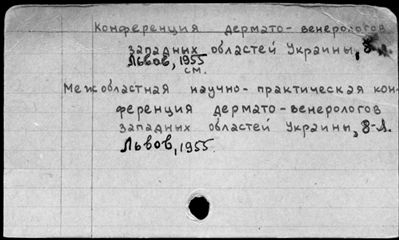 Конференция дермато-венерологов
западных областей Украины, 8-я.
Львов, 1955
см.
Межобластная научно-практическая кон-
ференция дермато-венерологов
западных областей Украины, 8-я.
Львов, 1955.